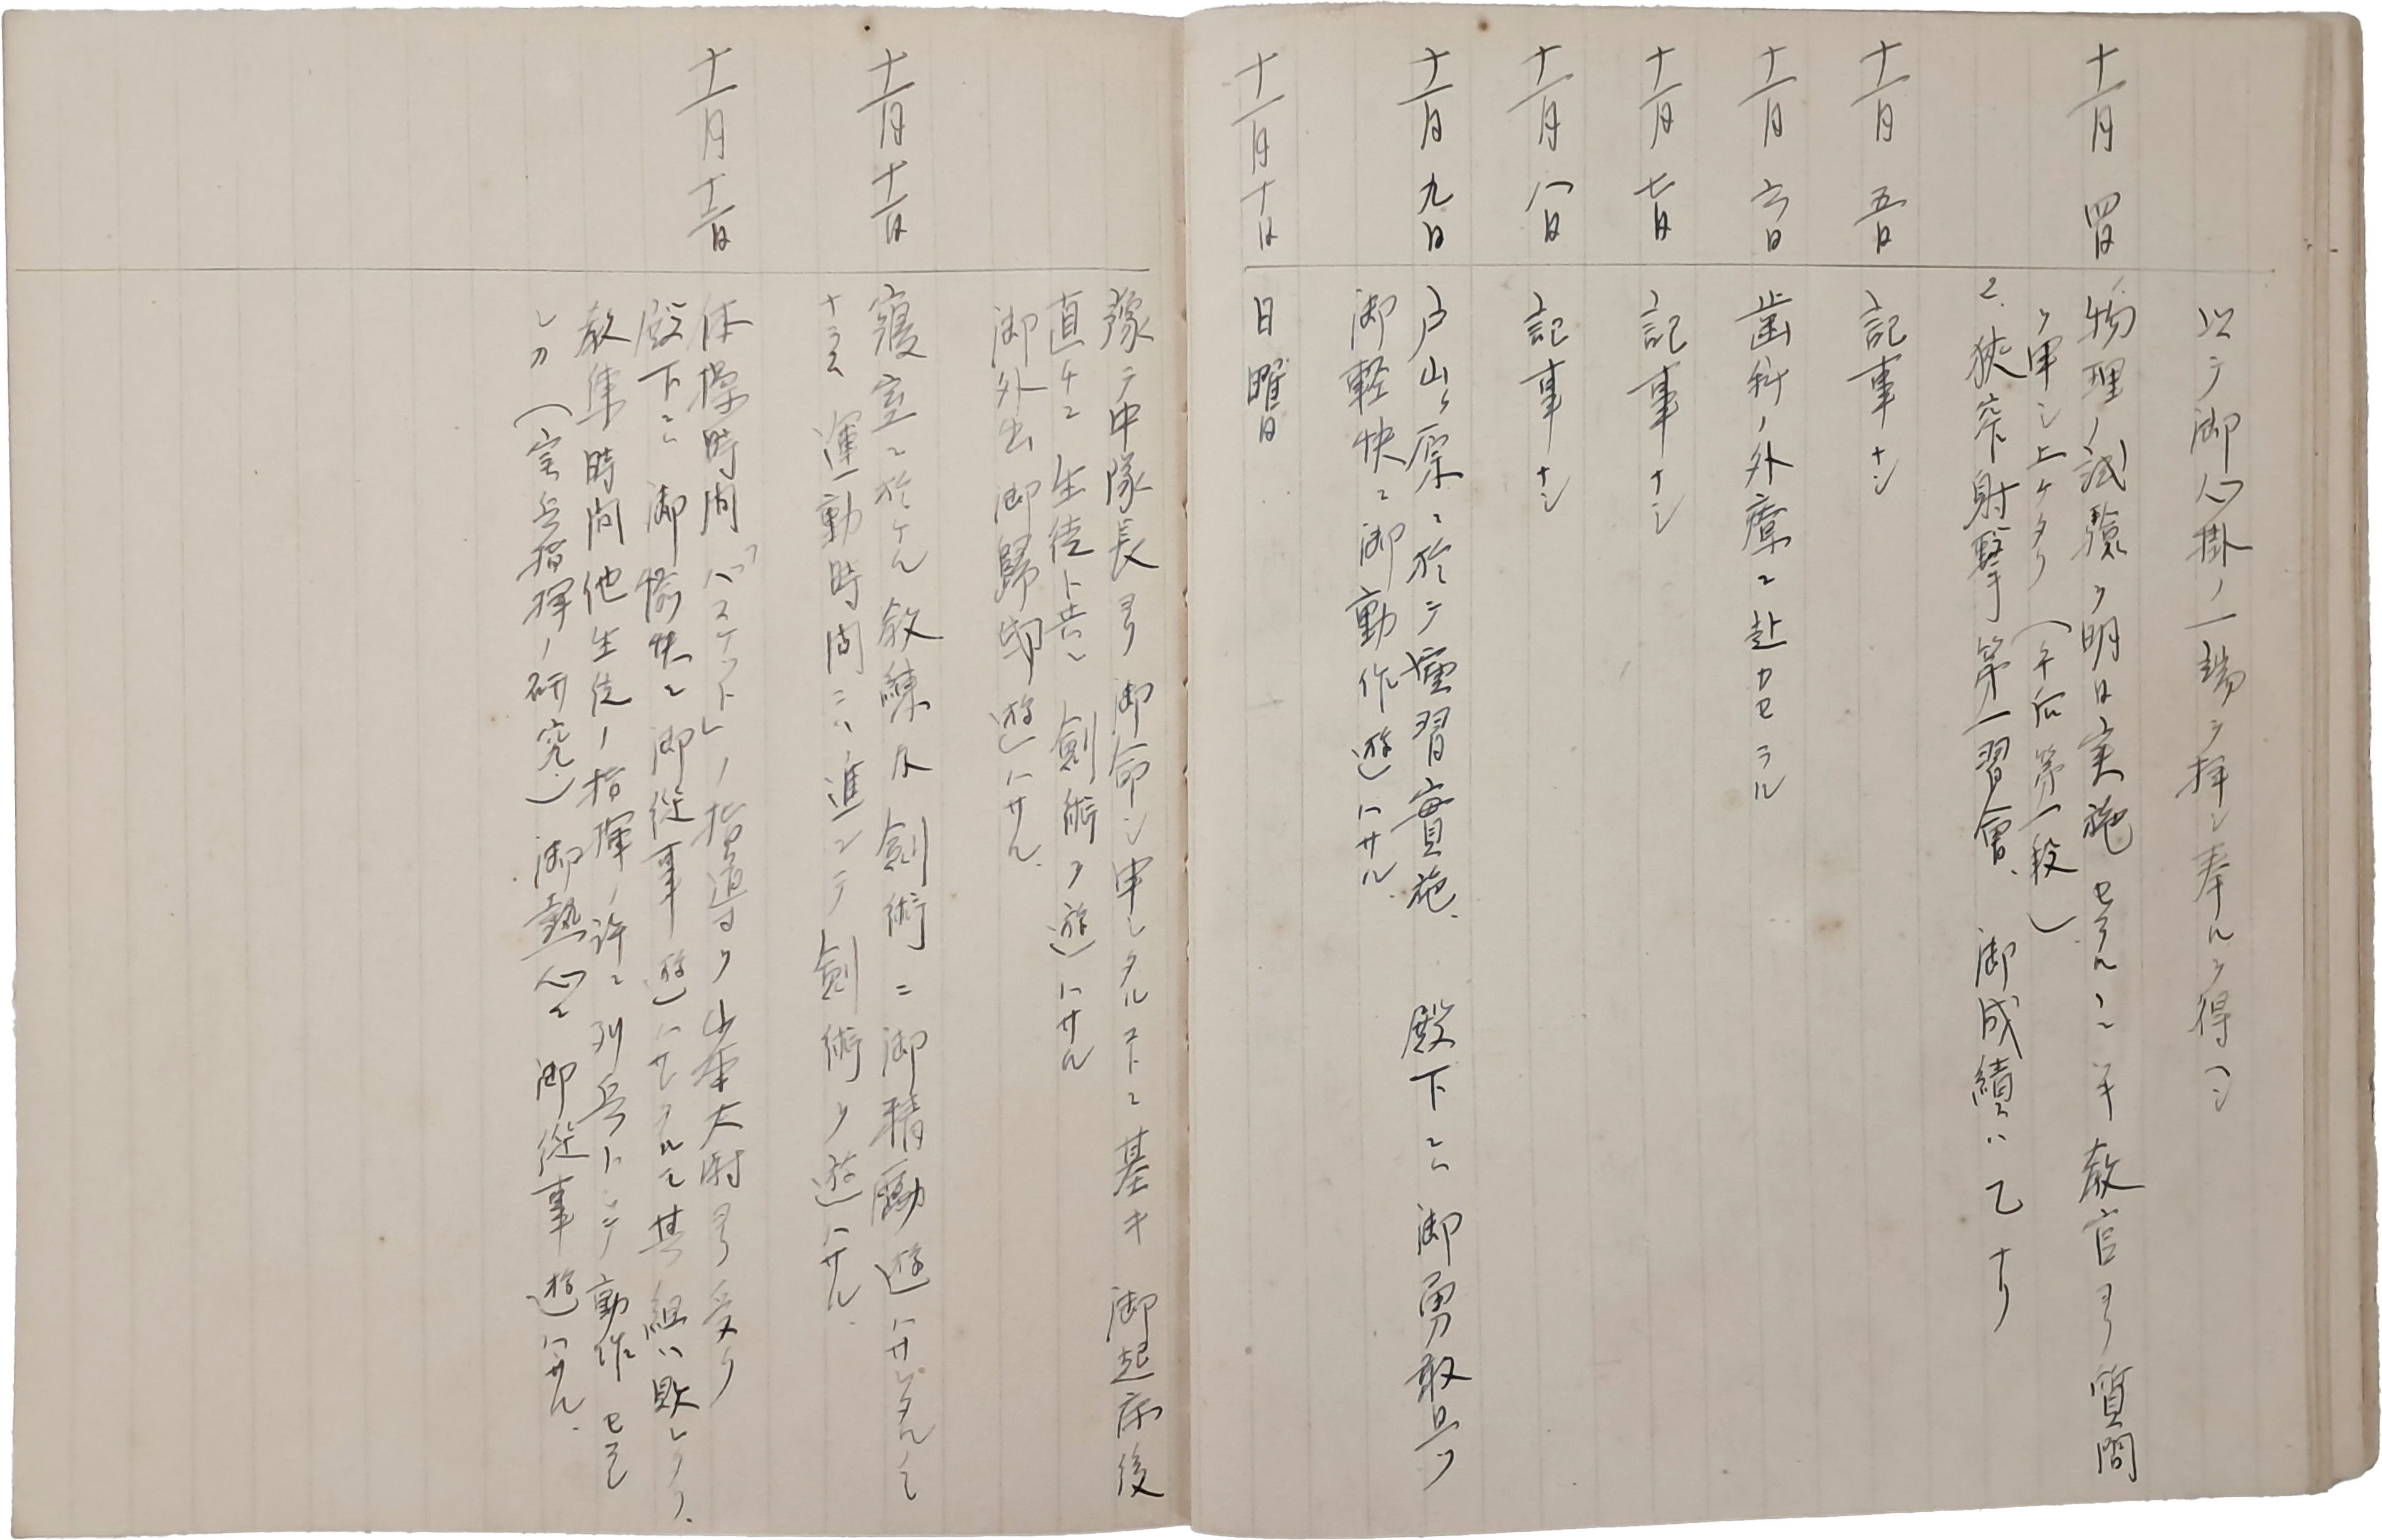 以テ御心掛ノ一端ヲ拝シ奉ルヲ得ヘシ
十一月四日 物理ノ試験ヲ明日実施セラルヽニヨキ教官ヨリ質問
ヲ申シ上ケタリ(午后第一段)
2.狭窄射撃第一習會、御成績ハ乙ナリ
十一月五日 記事ナシ
十一月六日 歯科ノ外療ニ赴カセラル
十一月七日 記事ナシ
十一月八日 記事ナシ
十一月九日 戸山ケ原ニ於テ演習實施、殿下ニハ御勇敢且ツ
御軽快ニ御動作遊ハサル
十一月十日 日曜日
豫テ中隊長ヨリ御命シ申シタルコトニ基キ御起床後
直チニ生徒ト共ニ劍術ヲ遊ハサル
御外出御歸-遊ハサル.
十一月十一日 寝室ニ於ケル教練及劍術ニ御精勵遊ハサレタルノミ
ナラス運動時間ニハ進ンテ劍術ヲ遊ハサル.
十一月十二日 体操時間「バスケット」ノ指導ヲ山本大尉ヨリ受ク
殿下ニハ御愉快ニ御従事遊ハサセラルモ其組ハ敗レタリ.
教練時間他生徒ノ指揮ノ許ニ列兵トシテ動作セラ
レタリ(実兵指揮ノ研究)御熱心ニ御従事遊ハサル.